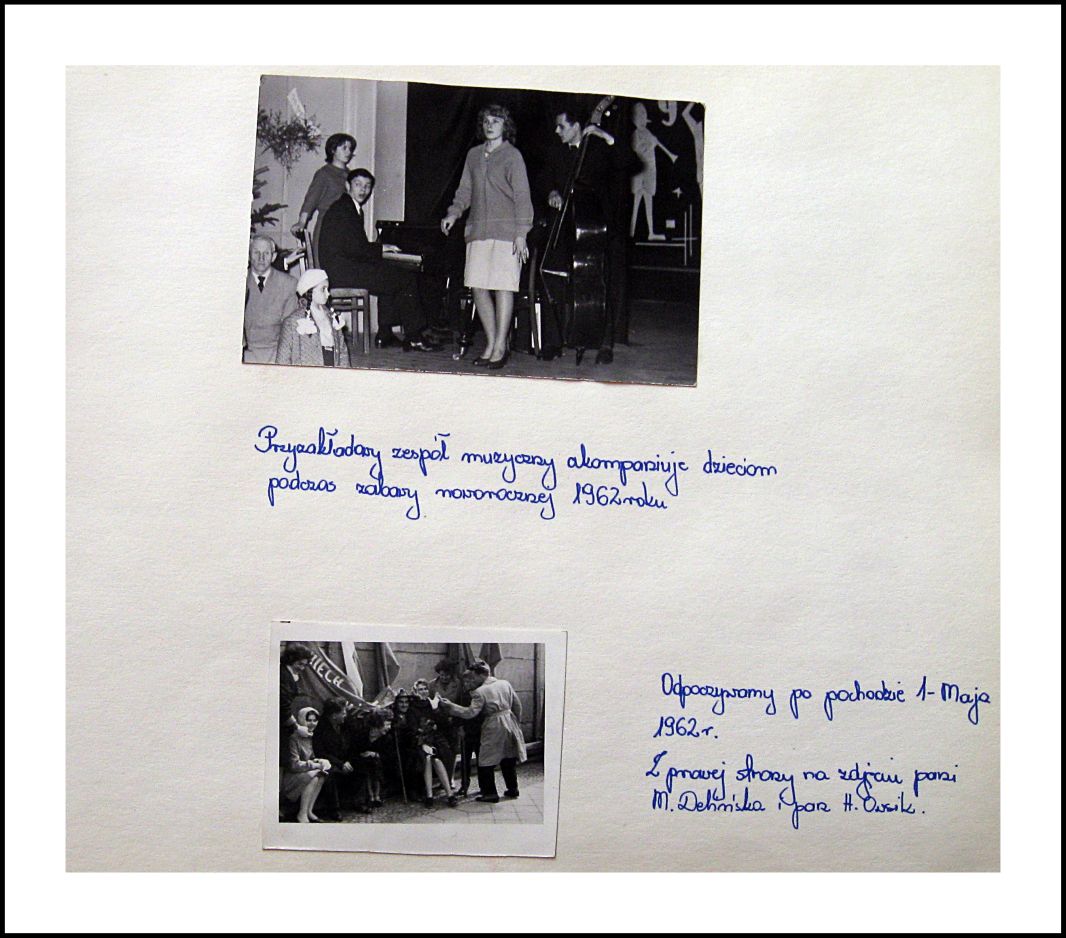 Przyzakładowy zespół muzyczny akompaniuje dzieciom
podczas zabawy noworocznej 1962 roku
NIECH
Odpoczywamy po pochodzie 1-Maja
1962 r.
Z prawej strony na zdjęciu pani
M. Delińska i pan H. Owsik.